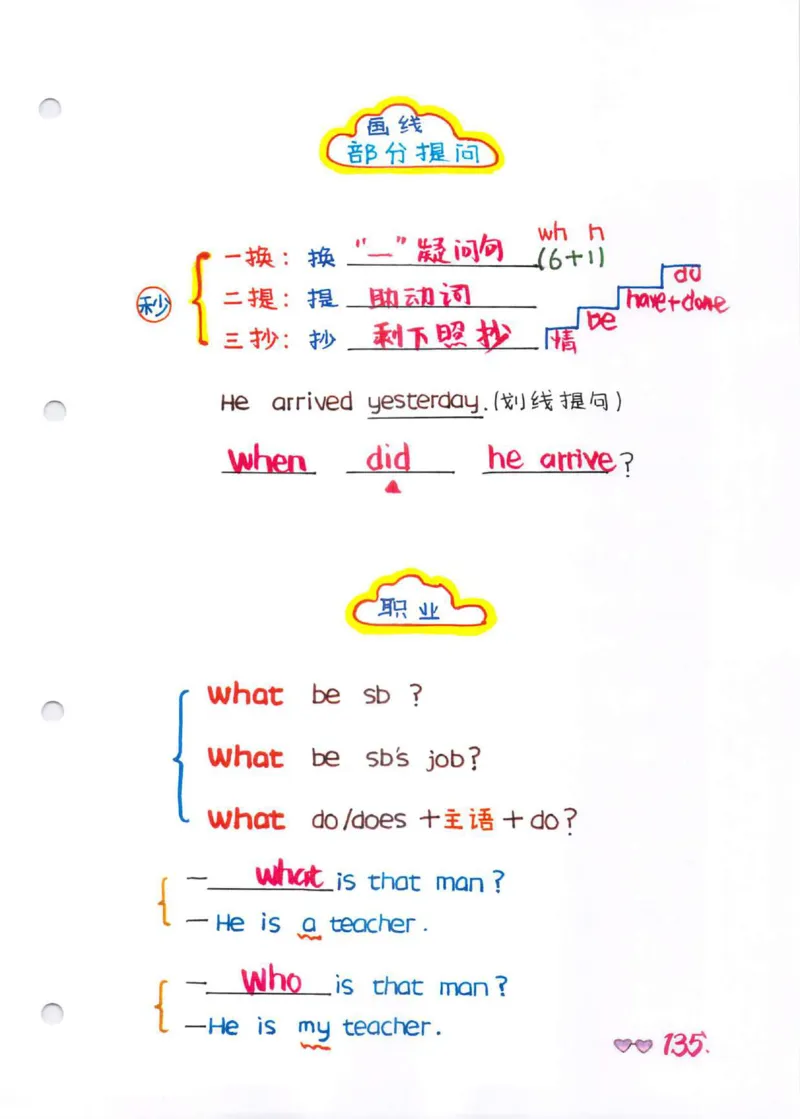 画线
部分提问
wh n
一换：换 “一”疑问句 (6+1)
二提：提 助动词
三抄：抄 剩下照抄
秒
情 be have+done do
He arrived yesterday.(划线提问)
when did he arrive?
职业
what be sb ?
what be sb's job?
what do/does +主语+do?
— what is that man?
— He is a teacher.
— Who is that man?
—He is my teacher.
135.